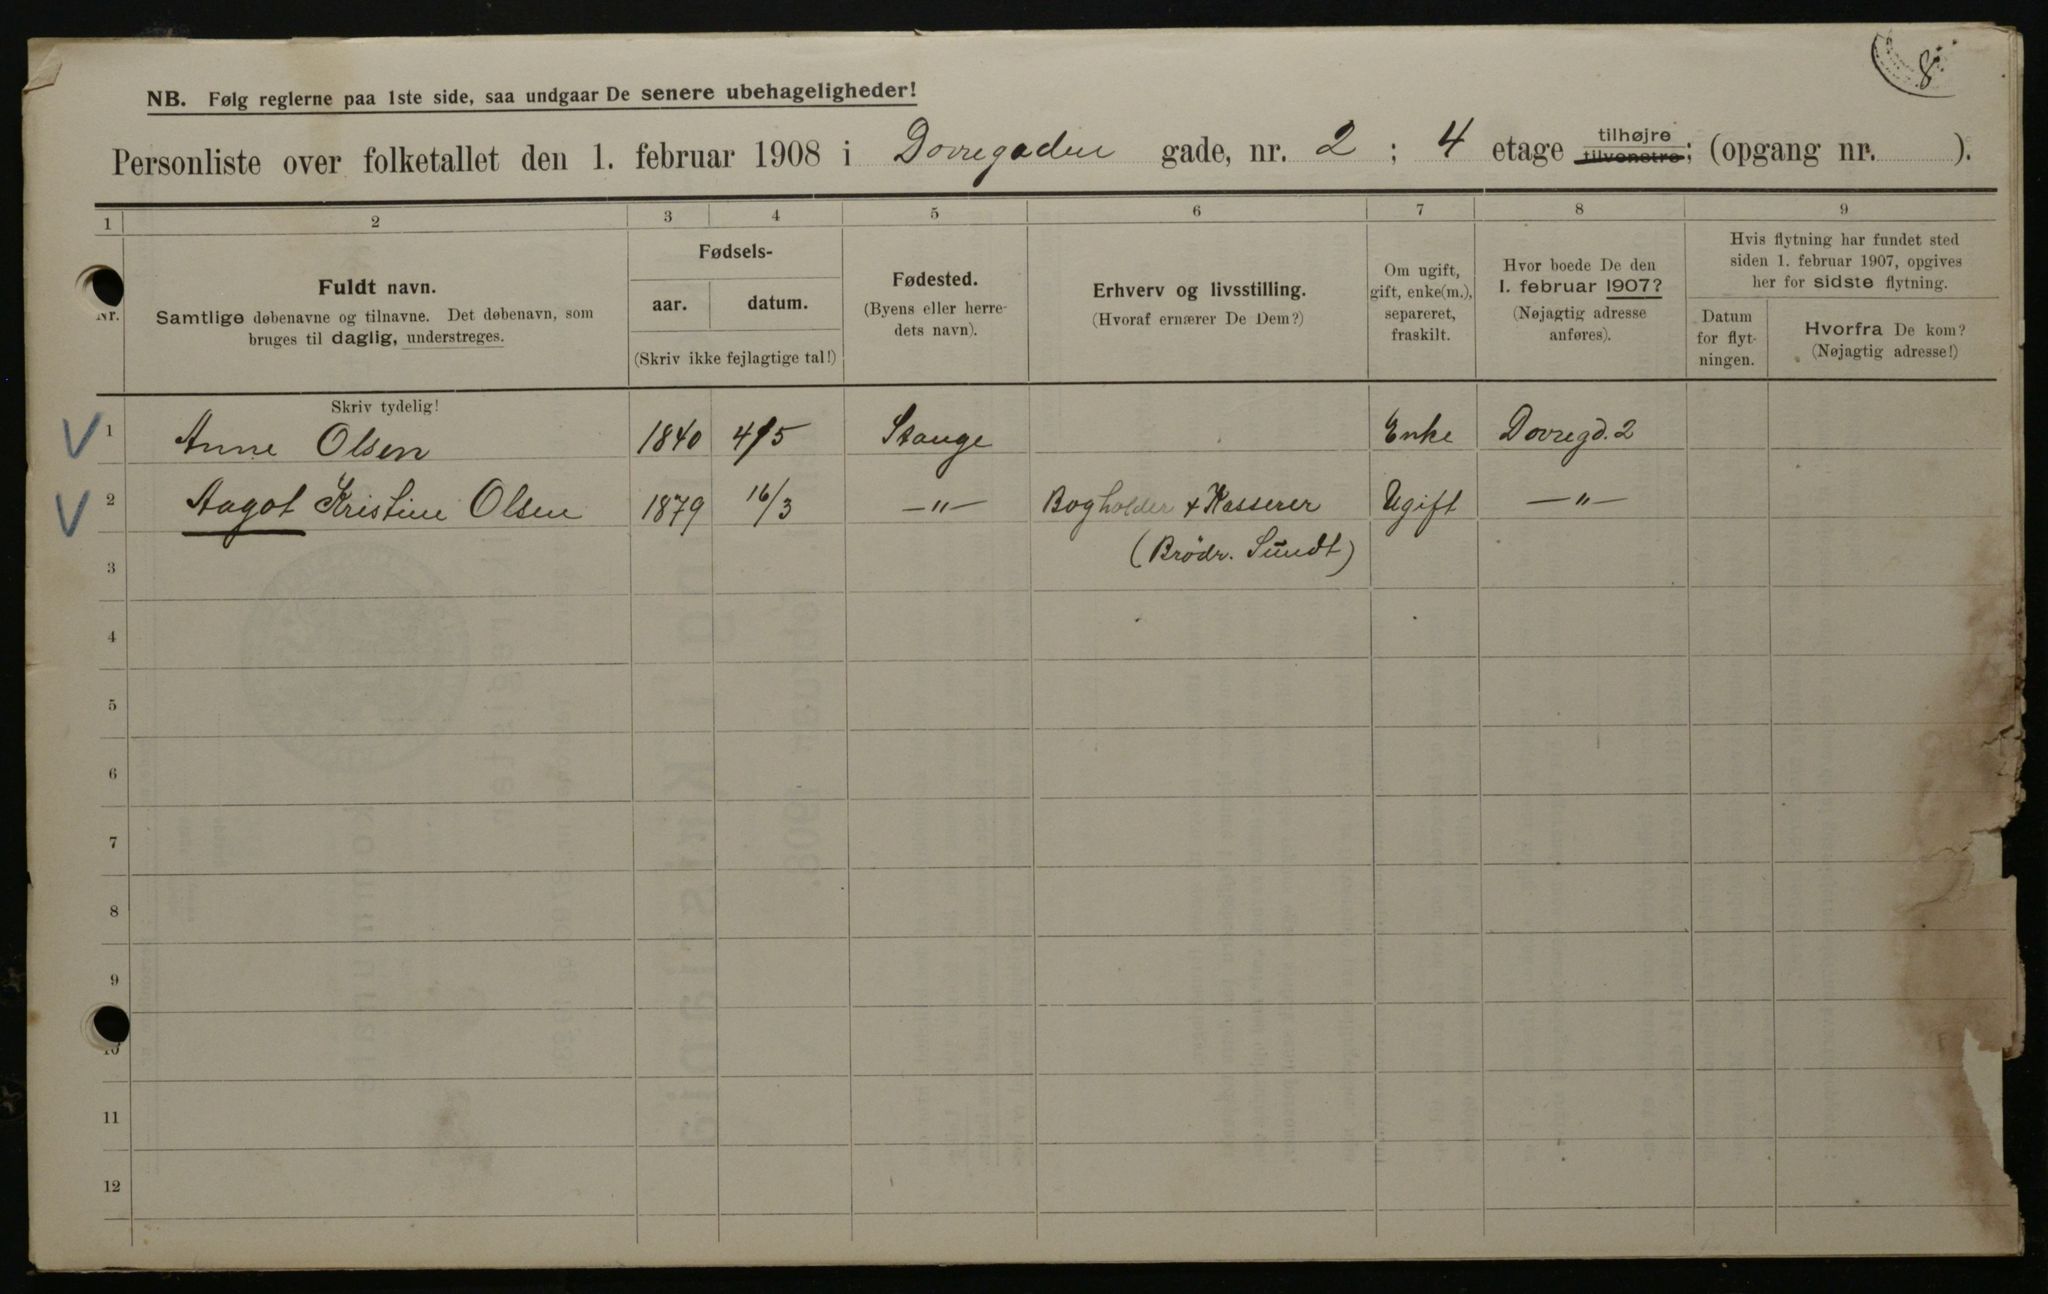 8
NB. Følg reglerne paa 1ste side, saa undgaar De senere ubehageligheder!
Personliste over folketallet den 1. februar 1908 i Dovregaden gade, nr. 2 ; 4 etage tilhøjre tilvenstre; (opgang nr. ).
1 2 3 4 5 6 7 8 9
Nr.
Fuldt navn.
Samtlige døbenavne og tilnavne. Det døbenavn, som
bruges til daglig, understreges.
Fødsels-
aar. datum.
(Skriv ikke fejlagtige tal!)
Fødested.
(Byens eller herre-
dets navn).
Erhverv og livsstilling.
(Hvoraf ernærer De Dem?)
Om ugift,
gift, enke(m.),
separeret,
fraskilt.
Hvor boede De den
1. februar 1907?
(Nøjagtig adresse
anføres).
Hvis flytning har fundet sted
siden 1. februar 1907, opgives
her for sidste flytning.
Datum
for flyt-
ningen.
Hvorfra De kom?
(Nøjagtig adresse!)
Skriv tydelig!
V 1 Anne Olsen 1840 4/5 Stange Enke Dovregd. 2
V 2 Aagot Kristine Olsen 1879 16/3 —"— Bogholder & Kasserer Ugift —"—
(Brödr. Sundt)
3
4
5
6
7
8
9
10
11
12